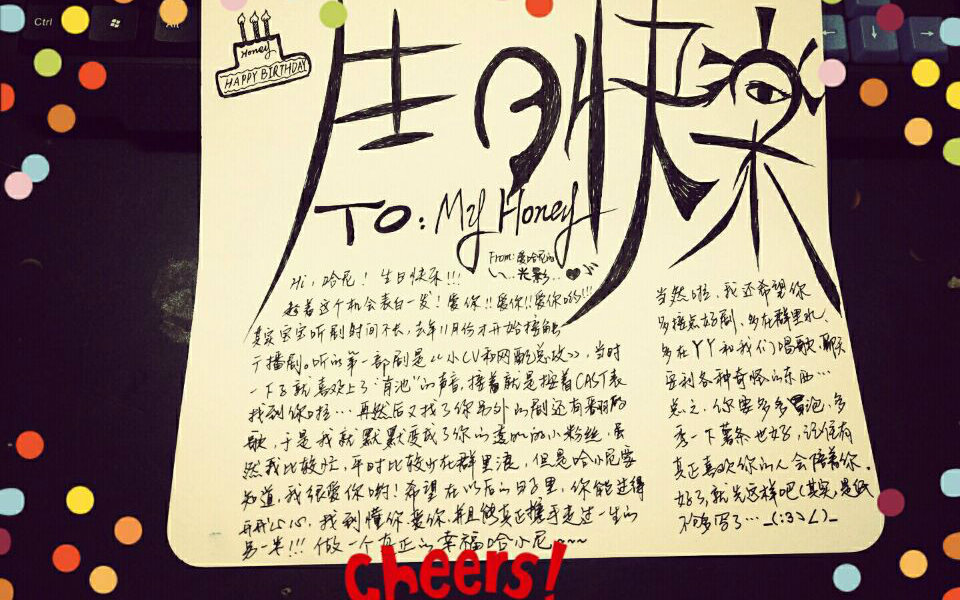 Ctrl
Alt
Honey
HAPPY BIRTHDAY
生日快乐
TO: My Honey
From: 爱哈尼的
光影
Hi, 哈尼! 生日快乐!!!
趁着这个机会表白一发! 爱你!! 爱你!! 爱你哟!!!
其实宝宝听剧时间不长, 去年11月份才开始接触
广播剧。听的第一部剧是《小CV和网配总攻》, 当时
一下子就喜欢上了“有池”的声音, 接着就是按着CAST表
找到你啦… 再然后又找了你另外的剧还有翻唱的
歌, 于是我就默默变成了你的小粉丝, 虽
然我比较忙, 平时比较少在群里浪, 但是哈小尼要
知道, 我很爱你哟! 希望在以后的日子里, 你能过得
开开心心, 找到懂你爱你, 并且能真正携手走过一生的
另一半!!! 做一个真正的幸福哈小尼~~~
当然啦, 我还希望你
多接点好剧、多在群里水、
多在YY和我们唱歌、聊天
安利各种奇怪的东西…
总之, 你要多多冒泡, 多
秀一下薯条也好, 记住有
真正喜欢你的人会陪着你。
好了, 就先这样吧(其实是纸
不够写了… _(:3」∠)_
Cheers!